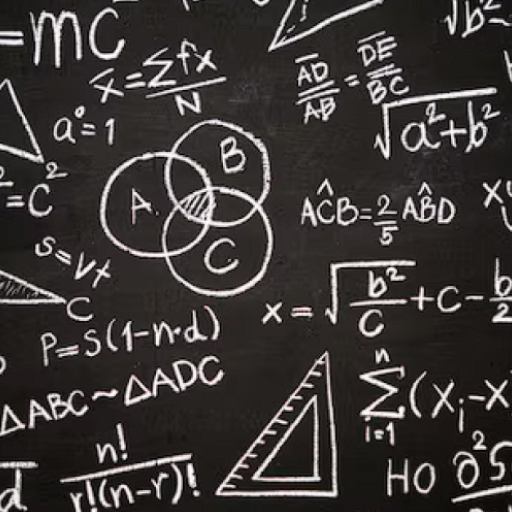 =mc
√b²-
x̄=Σfx/N
AD/AB=DE/BC
a°=1
√a²+b²
²=c²
A
B
C
AĈB=2/5AB̂D
s=vx
C
x=√b²/c+c-b/2
P=S(1-n·d)
△ABC~△ADC
n Σ i=1 (xᵢ-x
n!/r!(n-r)!
d
HO